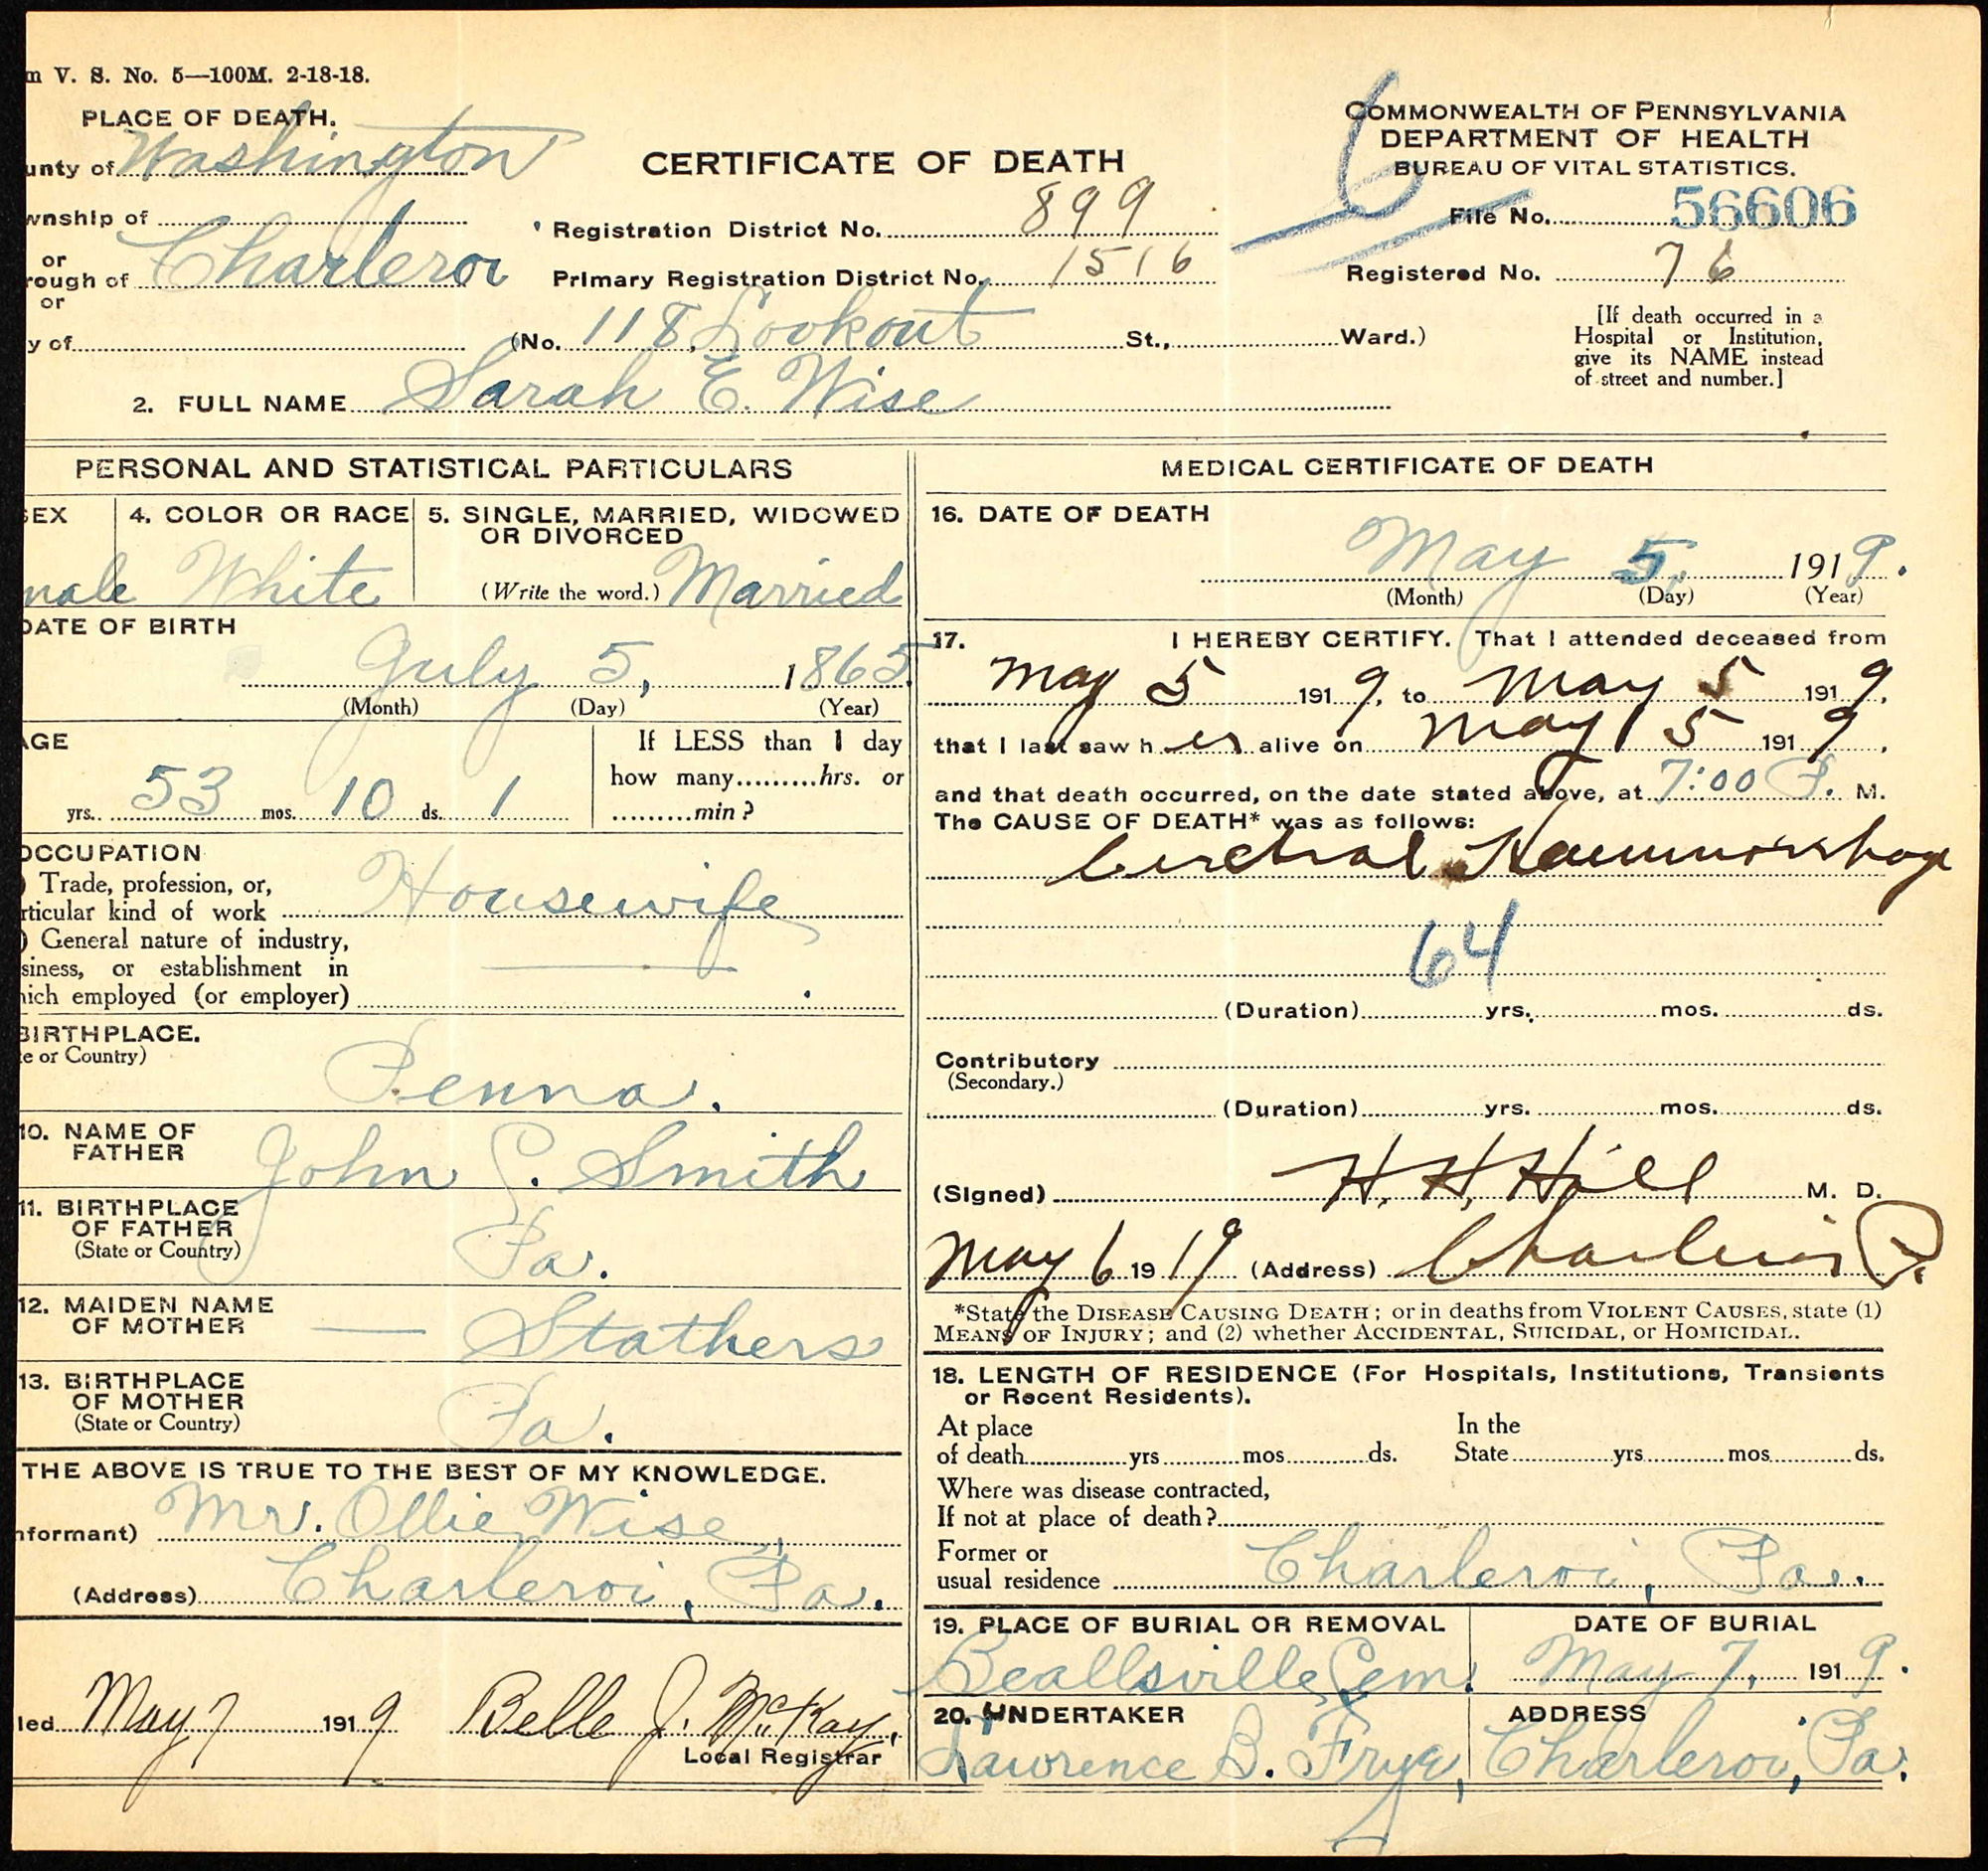 m V. S. No. 5—100M. 2-18-18.
PLACE OF DEATH.
unty of Washington
wnship of
or
rough of Charleroi
or
y of
CERTIFICATE OF DEATH
Registration District No. 899
Primary Registration District No. 1516
(No. 118 Lookout St., Ward.)
COMMONWEALTH OF PENNSYLVANIA
DEPARTMENT OF HEALTH
BUREAU OF VITAL STATISTICS.
6
File No. 56606
Registered No. 76
[If death occurred in a
Hospital or Institution,
give its NAME instead
of street and number.]
2. FULL NAME Sarah E. Wise
PERSONAL AND STATISTICAL PARTICULARS
SEX
male
4. COLOR OR RACE
White
5. SINGLE, MARRIED, WIDOWED
OR DIVORCED
(Write the word.) Married
DATE OF BIRTH
July 5, 1865
(Month) (Day) (Year)
AGE
yrs. 53 mos. 10 ds. 1
If LESS than 1 day
how many.........hrs. or
.........min?
OCCUPATION
) Trade, profession, or,
rticular kind of work Housewife
) General nature of industry,
siness, or establishment in
hich employed (or employer)
BIRTHPLACE.
e or Country)
Penna.
10. NAME OF
FATHER
John S. Smith
11. BIRTHPLACE
OF FATHER
(State or Country)
Pa.
12. MAIDEN NAME
OF MOTHER
— Stathers
13. BIRTHPLACE
OF MOTHER
(State or Country)
Pa.
THE ABOVE IS TRUE TO THE BEST OF MY KNOWLEDGE.
nformant) Mr. Ollie Wise,
(Address) Charleroi, Pa.
led May 7 1919 Belle J. McKay,
Local Registrar
MEDICAL CERTIFICATE OF DEATH
16. DATE OF DEATH
May 5, 1919.
(Month) (Day) (Year)
17. I HEREBY CERTIFY. That I attended deceased from
May 5 1919, to May 5 1919,
that I last saw her alive on May 5 1919,
and that death occurred, on the date stated above, at 7:00 P. M.
The CAUSE OF DEATH* was as follows:
Cerebral Haemmorrhage
64
(Duration) yrs. mos. ds.
Contributory
(Secondary.)
(Duration) yrs. mos. ds.
(Signed) H. H. Hill M. D.
May 6 1919 (Address) Charleroi P.
*State the DISEASE CAUSING DEATH; or in deaths from VIOLENT CAUSES, state (1)
MEANS OF INJURY; and (2) whether ACCIDENTAL, SUICIDAL, or HOMICIDAL.
18. LENGTH OF RESIDENCE (For Hospitals, Institutions, Transients
or Recent Residents).
At place
of death yrs mos ds.
In the
State yrs mos ds.
Where was disease contracted,
If not at place of death?
Former or
usual residence Charleroi, Pa.
19. PLACE OF BURIAL OR REMOVAL
Beallsville Cem.
DATE OF BURIAL
May 7, 1919.
20. UNDERTAKER
Lawrence B. Frye,
ADDRESS
Charleroi, Pa.